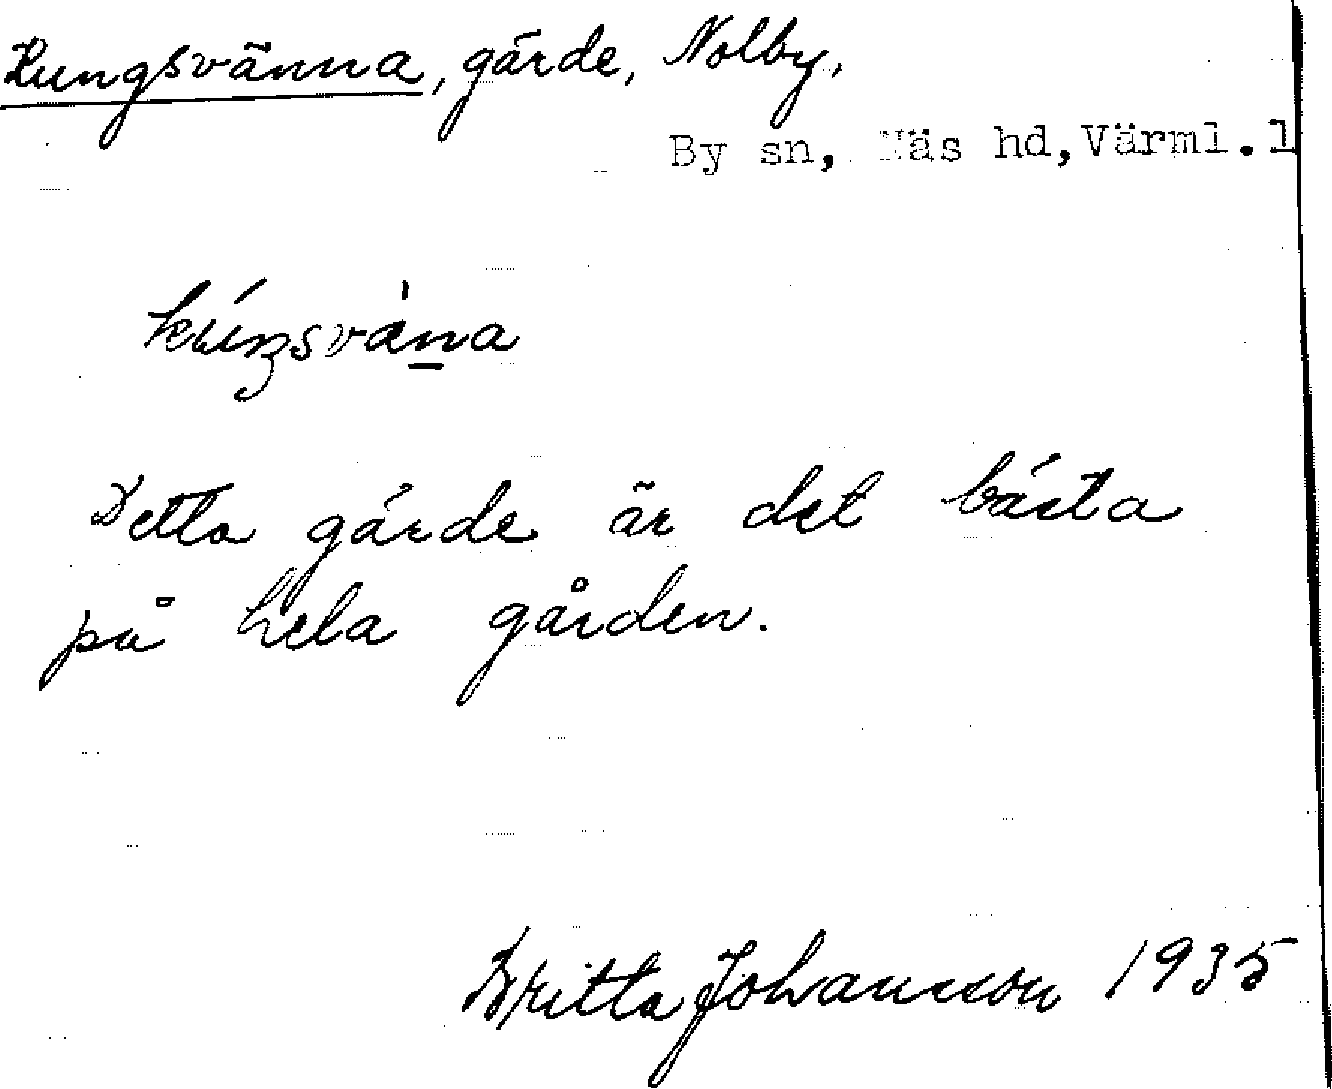 Kungsvänna, gärde, Nolby,
By sn, Näs hd, Värml. l
kúŋsvàna
Detta gärde är det bästa
på hela gården.
Britta Johansson 1935